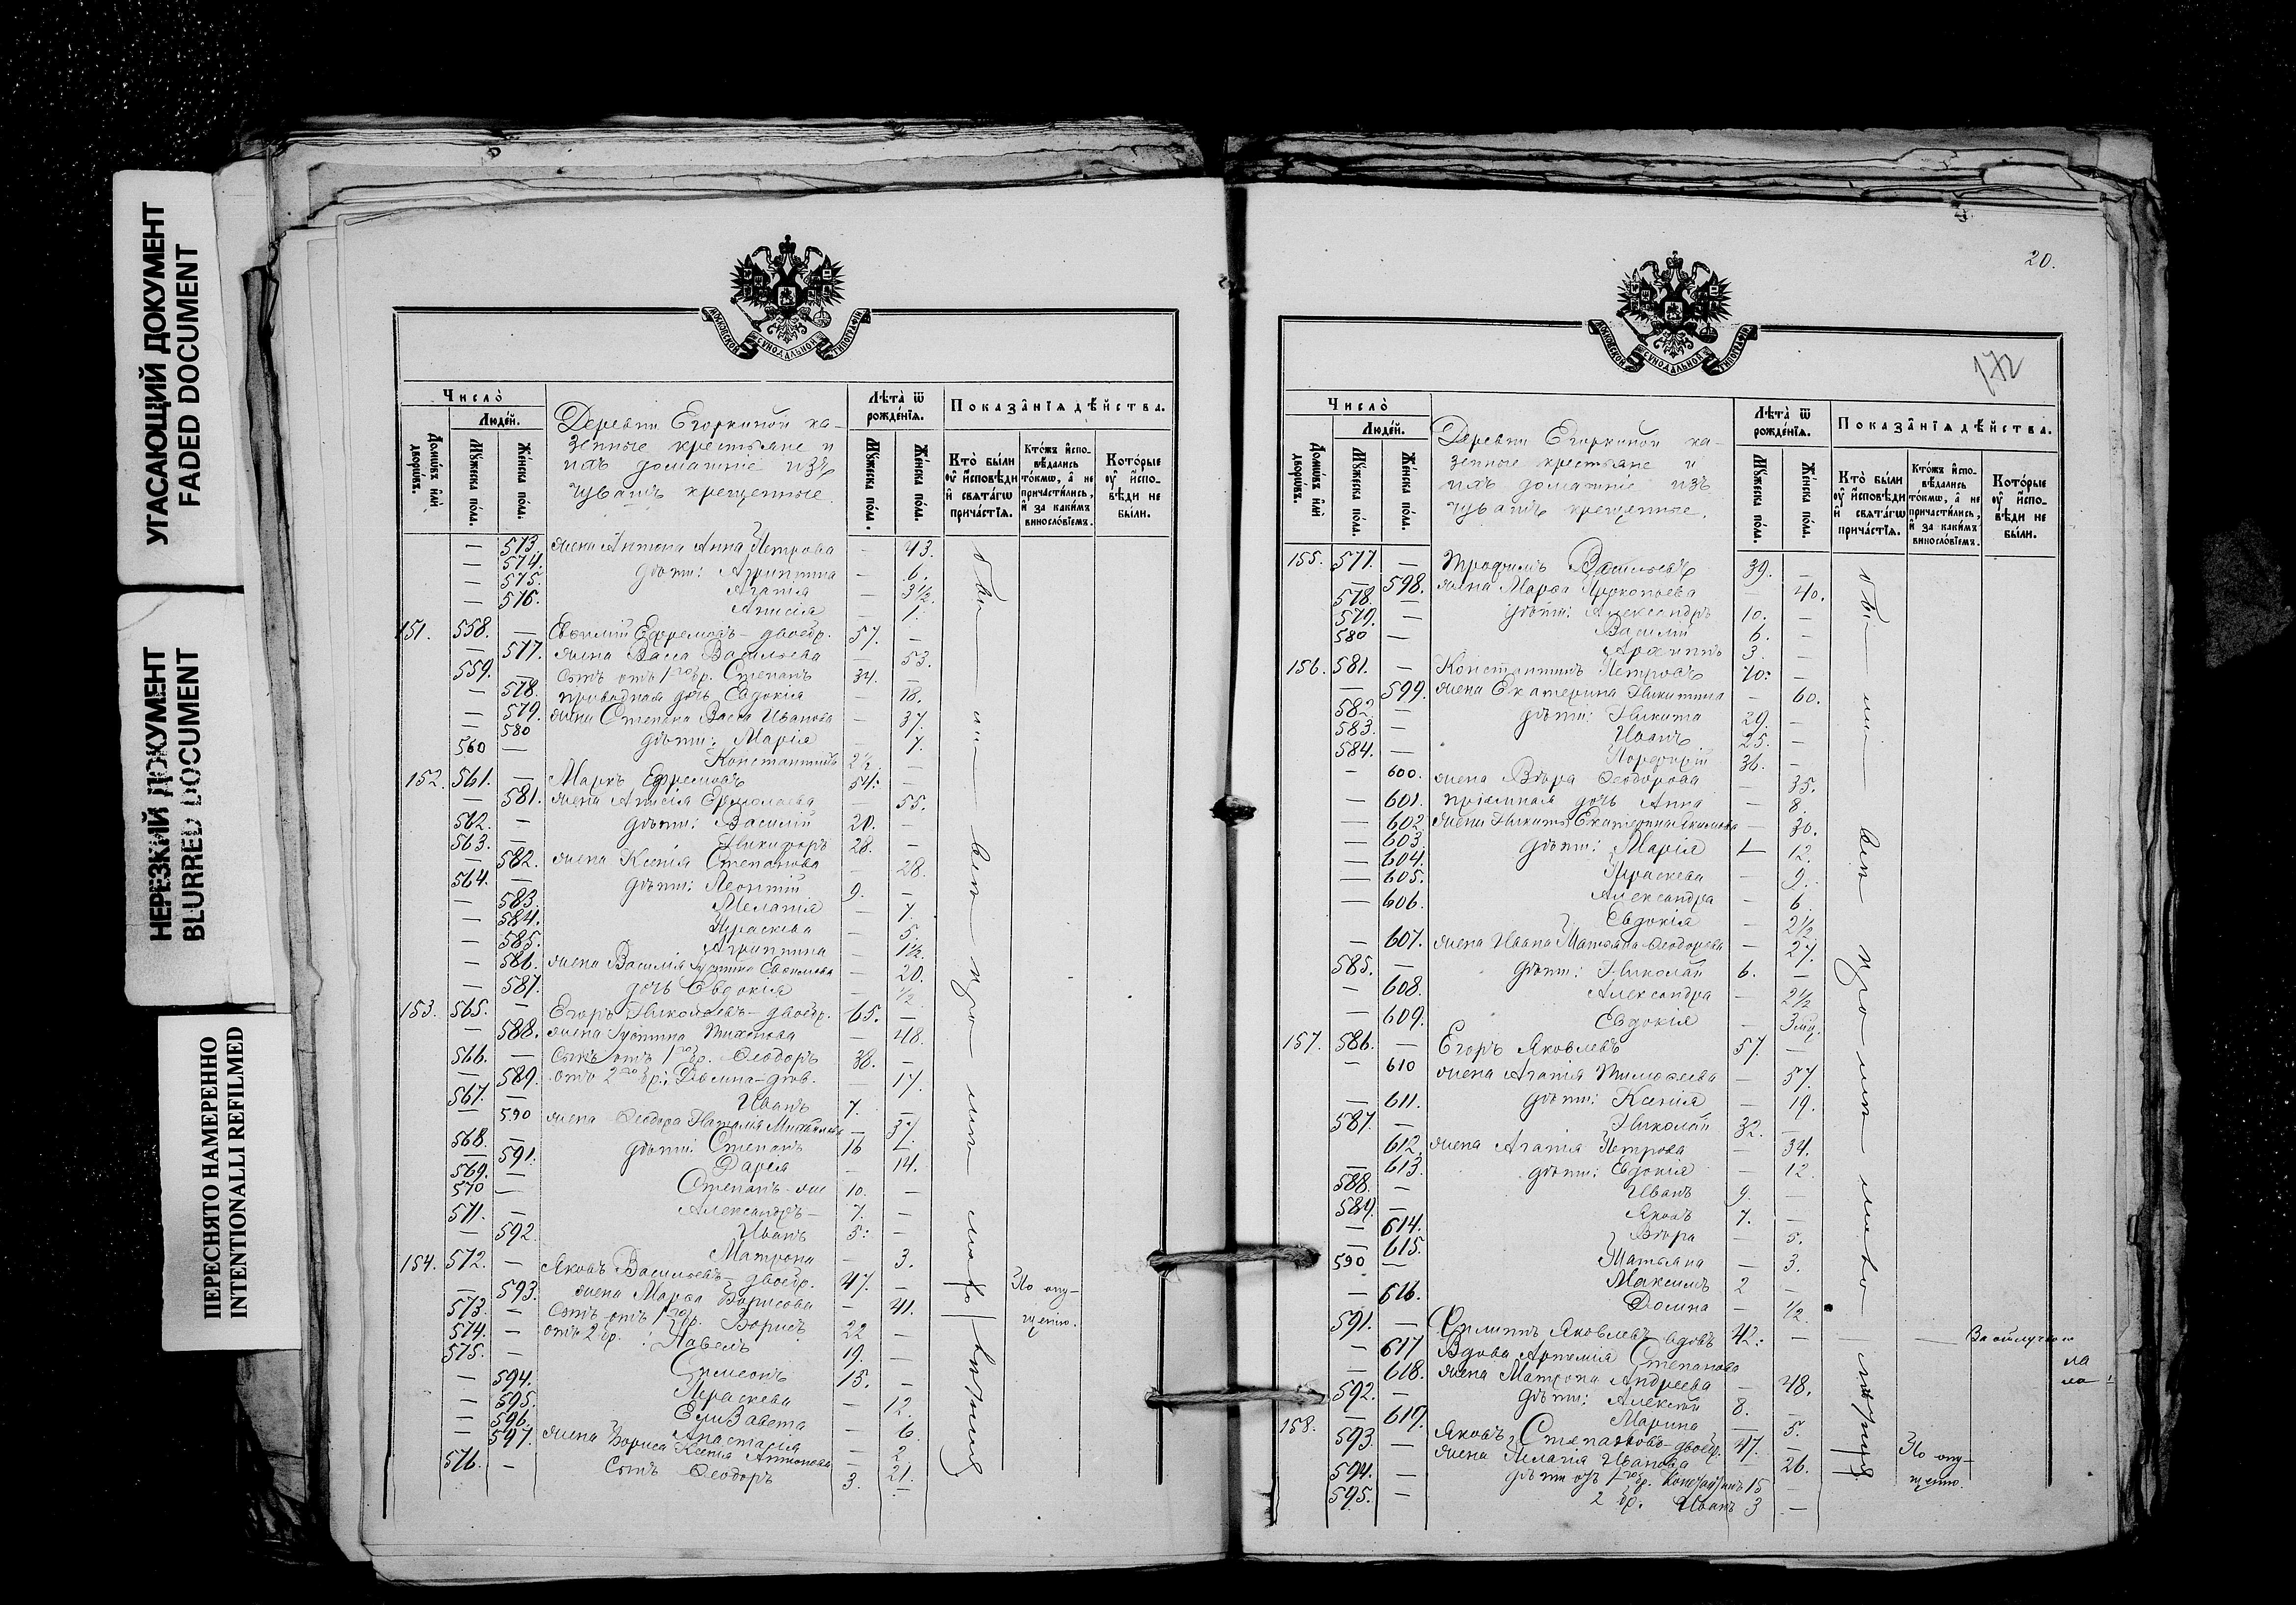 УГАСАЮЩИЙ ДОКУМЕНТ
FADED DOCUMENT
НЕРЕЗКИЙ ДОКУМЕНТ
BLURRED DOCUMENT
ПЕРЕСНЯТО НАМЕРЕННО
INTENTIONALLI REFILMED
МОСКОВСКОЙ СѴНОДАЛЬНОЙ ТИПОГРАФІИ
Число̀
Люде́й.
Домѡ́въ и҆лѝ дворѡ́въ.
Мꙋ́жеска по́ла.
Же́нска по́ла.
Деревни Егоркиной ка-
зенные крестьяне и
ихъ домашніе изъ
чувашъ крещенные.
Лѣ́та ѿ рожде́нїѧ.
Мꙋ́жеска по́ла.
Же́нска по́ла.
Показа́нїѧ дѣ́йства.
Кто̀ бы́ли оу҆ и҆сповѣ́ди и҆ свѧта́гѡ прича́стїѧ.
Кто́жъ и҆спо-вѣ́дались то́кмѡ, а҆ не причасти́лись, и҆ за каки́мъ винослѡ́вїемъ.
Кото́рые оу҆ и҆спо-вѣ́ди не бы́ли.
— 573. жена Антона Анна Петрова — 43.
— 574. дѣти: Агриппина — 6.
— 575. Агаѳія — 3½.
— 576. Анисія — 1.
151. 558. — Евѳимій Ефремовъ – двоебр. 57. —
— 577. жена Васса Васильева — 53.
559. — сынъ отъ 1го бр. Степанъ 34. —
— 578. приводная дочь Евдокія — 18.
— 579. жена Степана Васса Иванова — 37.
— 580 дѣти: Марія — 7.
560 — Константинъ 2½ —
152. 561. — Маркъ Ефремовъ 54. —
— 581. жена Анисія Ермолаева — 55.
562. — дѣти: Василій 20. —
563. — Никифоръ 28. —
— 582. жена Ксенія Степанова — 28.
564. — дѣти: Леонтій 9. —
— 583. Меланія — 7.
— 584. Праскева — 5.
— 585. Агриппина — 1½.
— 586. жена Василія Іустина Евѳимьева — 20.
— 587. дочь Евдокія — ½
153. 565. — Егоръ Николаевъ – двоебр. 65. —
— 588. жена Іустина Тихонова — 48.
566. — сынъ отъ 1го бр. Ѳеодоръ 38. —
— 589. отъ 2го бр.: – дѣв. — 17.
567. — Иванъ 7. —
— 590 жена Ѳеодора Наталія Михайлова — 37.
568. — дѣти: Степанъ 16 —
— 591. Дарія — 14.
569. — Степанъ 10. —
570 — Александръ 7. —
571. — Иванъ 5. —
— 592. Матрона — 3.
154. 572. — Яковъ Васильевъ – двоебр. 47. —
— 593. жена Марѳа Борисова — 41.
573. — сынъ отъ 1го бр. Борисъ 22 —
574. — отъ 2 бр.: Павелъ 19. —
575. — Симеонъ 15. —
— 594. Праскева — 12.
— 595. Елизавета — 6.
— 596. Анастасія — 2
— 597. жена Бориса Ксенія Антонова — 21.
576. — сынъ Ѳеодоръ 3. —
По опу-
щенію.
20.
172
МОСКОВСКОЙ СѴНОДАЛЬНОЙ ТИПОГРАФІИ
Число̀
Люде́й.
Домѡ́въ и҆лѝ дворѡ́въ.
Мꙋ́жеска по́ла.
Же́нска по́ла.
Деревни Егоркиной ка-
зенные крестьяне и
ихъ домашніе изъ
чувашъ крещенные.
Лѣ́та ѿ рожде́нїѧ.
Мꙋ́жеска по́ла.
Же́нска по́ла.
Показа́нїѧ дѣ́йства.
Кто̀ бы́ли оу҆ и҆сповѣ́ди и҆ свѧта́гѡ прича́стїѧ.
Кто́жъ и҆спо-вѣ́дались то́кмѡ, а҆ не причасти́лись, и҆ за каки́мъ винослѡ́вїемъ.
Кото́рые оу҆ и҆спо-вѣ́ди не бы́ли.
155. 577. — Трофимъ Васильевъ 39. —
— 598. жена Марѳа Прокопьева — 40.
578. — дѣти: Александръ 10. —
579. — Василій 6. —
580 — Архиппъ 3. —
156. 581. — Константинъ Петровъ 70. —
— 599. жена Екатерина Никитина — 60.
582. — дѣти: Никита 29. —
583. — Иванъ 25. —
584. — Порфирій 36. —
— 600. жена Вѣра Ѳеодорова — 35.
— 601. пріемная дочь Анна — 8.
— 602 жена Никиты Екатерина Якимова — 30.
— 603. дѣти: Марія — 12.
— 604. Праскева — 9.
— 605. Александра — 6.
— 606. Евдокія — 2½
— 607. жена Ивана Татьяна Ѳеодорова — 27.
585. — дѣти: Николай 6. —
— 608. Александра — 2½
— 609. Евдокія — 3 мѣс.
157. 586. — Егоръ Яковлевъ 57. —
— 610 жена Агаѳія Тимоѳеева — 57.
— 611. дѣти: Ксенія — 19.
587. — Николай 32. —
612. жена Агаѳія Петрова — 34.
— 613. дѣти: Евдокія — 12.
588. — Иванъ 9. —
589. — Яковъ 7. —
— 614. Вѣра — 5.
— 615. Татьяна — 3.
590 — Максимъ 2 —
— 616. Домна — ½
591. — Филиппъ Яковлевъ вдовъ 42. — За отлучкою
— 617 Вдова Артемія Степанова
— 618. жена Матрона Андреева — 48.
592. — дѣти: Алексѣй 8. —
— 619. Марина — 5.
158. 593. — Яковъ Степановъ двоебр. 47. —
жена Пелагія Иванова — 26.
594. — дѣти отъ 1го бр. Константинъ 15 —
595. — 2 бр. Иванъ 3 —
По опу-
щенію.